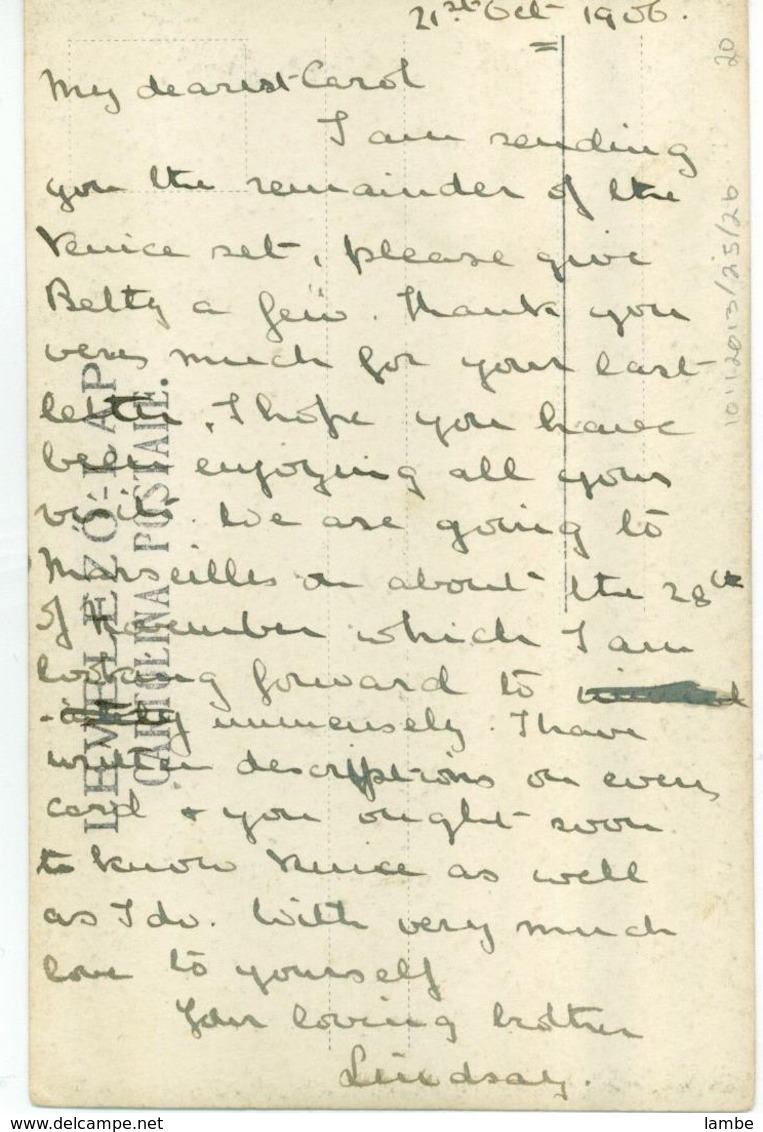 21st Oct 1906.
My dearest Carol
I am sending
you the remainder of the
Venice set, please give
Betty a few. Thank you
very much for your last
letter, I hope you have
been enjoying all your
visits. We are going to
Marseilles on about the 28th
of November which I am
looking forward to
immensely. I have
written descriptions on every
card & you ought soon
to know Venice as well
as I do. With very much
love to yourself
Your loving brother
Lindsay.
LEVELEZŐ-LAP
CARTOLINA POSTALE.
20
1011/2013/25/26
www.delcampe.net
lambe